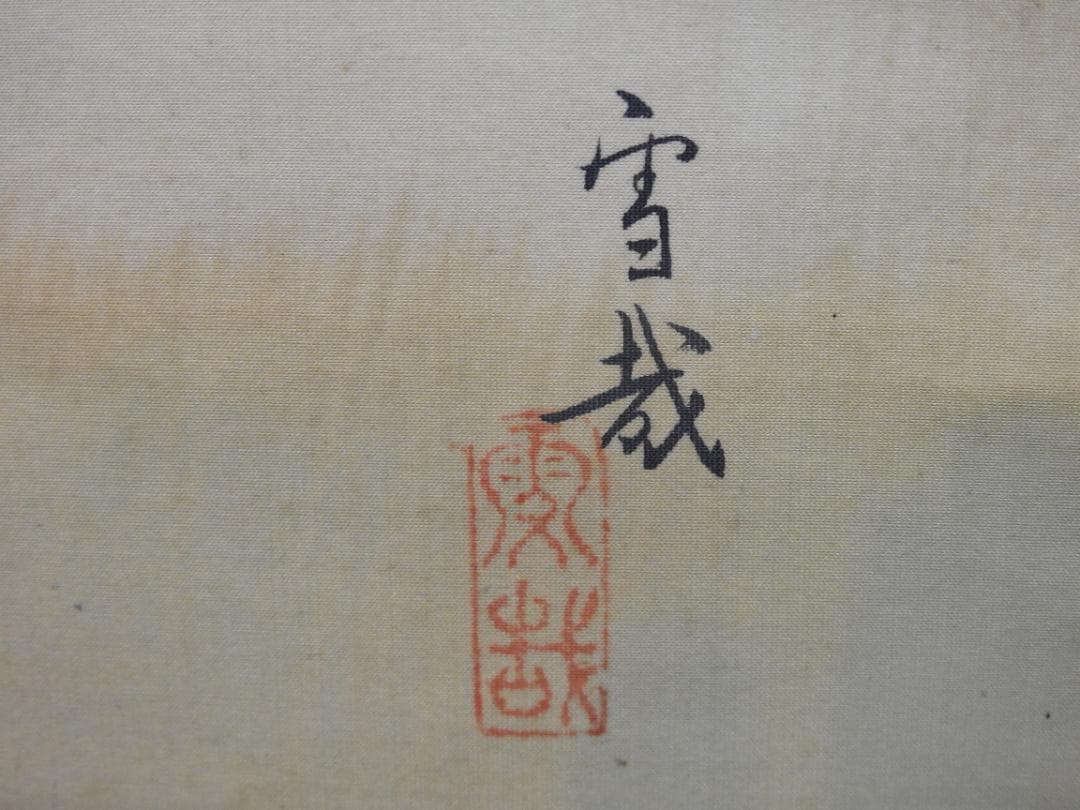 雪哉
雪哉